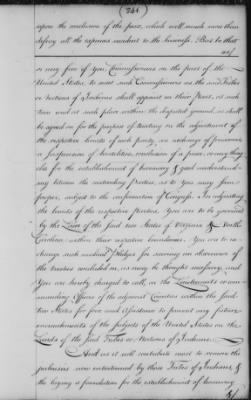 241
upon the conclusion of the peace, which will much more than
defray all the expences incident to the business. But be that
as/
or any five of you Commissioners on the part of the
United States to meet such Commissioners as the said Tribes
or Nations of Indians shall appoint on their part, at such
time and at such place within the disputed ground, as shall
be agreed on for the purpose of treating on the adjustment of
the respective bounds of each party, an exchange of prisoners
a suspension of hostilities, conclusion of a peace, or any thing
else for the establishment of harmony & good understand-
ing between the contending Parties, as to you may seem
proper, subject to the confirmation of Congress. In adjusting
the bounds of the respective parties, You are to be governed
by the Laws of the said two States of Virginia & North
Carolina within their respective boundaries. You are to ex-
change such mutual Pledges for securing an observance of
the treaties concluded on, as may be thought necessary, and
You are hereby charged to call on the Lieutenants or com-
manding Officers of the adjacent Counties within the said
two States for force and assistance to prevent any future
encroachments of the subjects of the United States on the
Lands of the said Tribes or Nations of Indians.
And as it will contribute most to remove the
jealousies now entertained by those Tribes of Indians, &
the laying a foundation for the establishment of harmony
&/